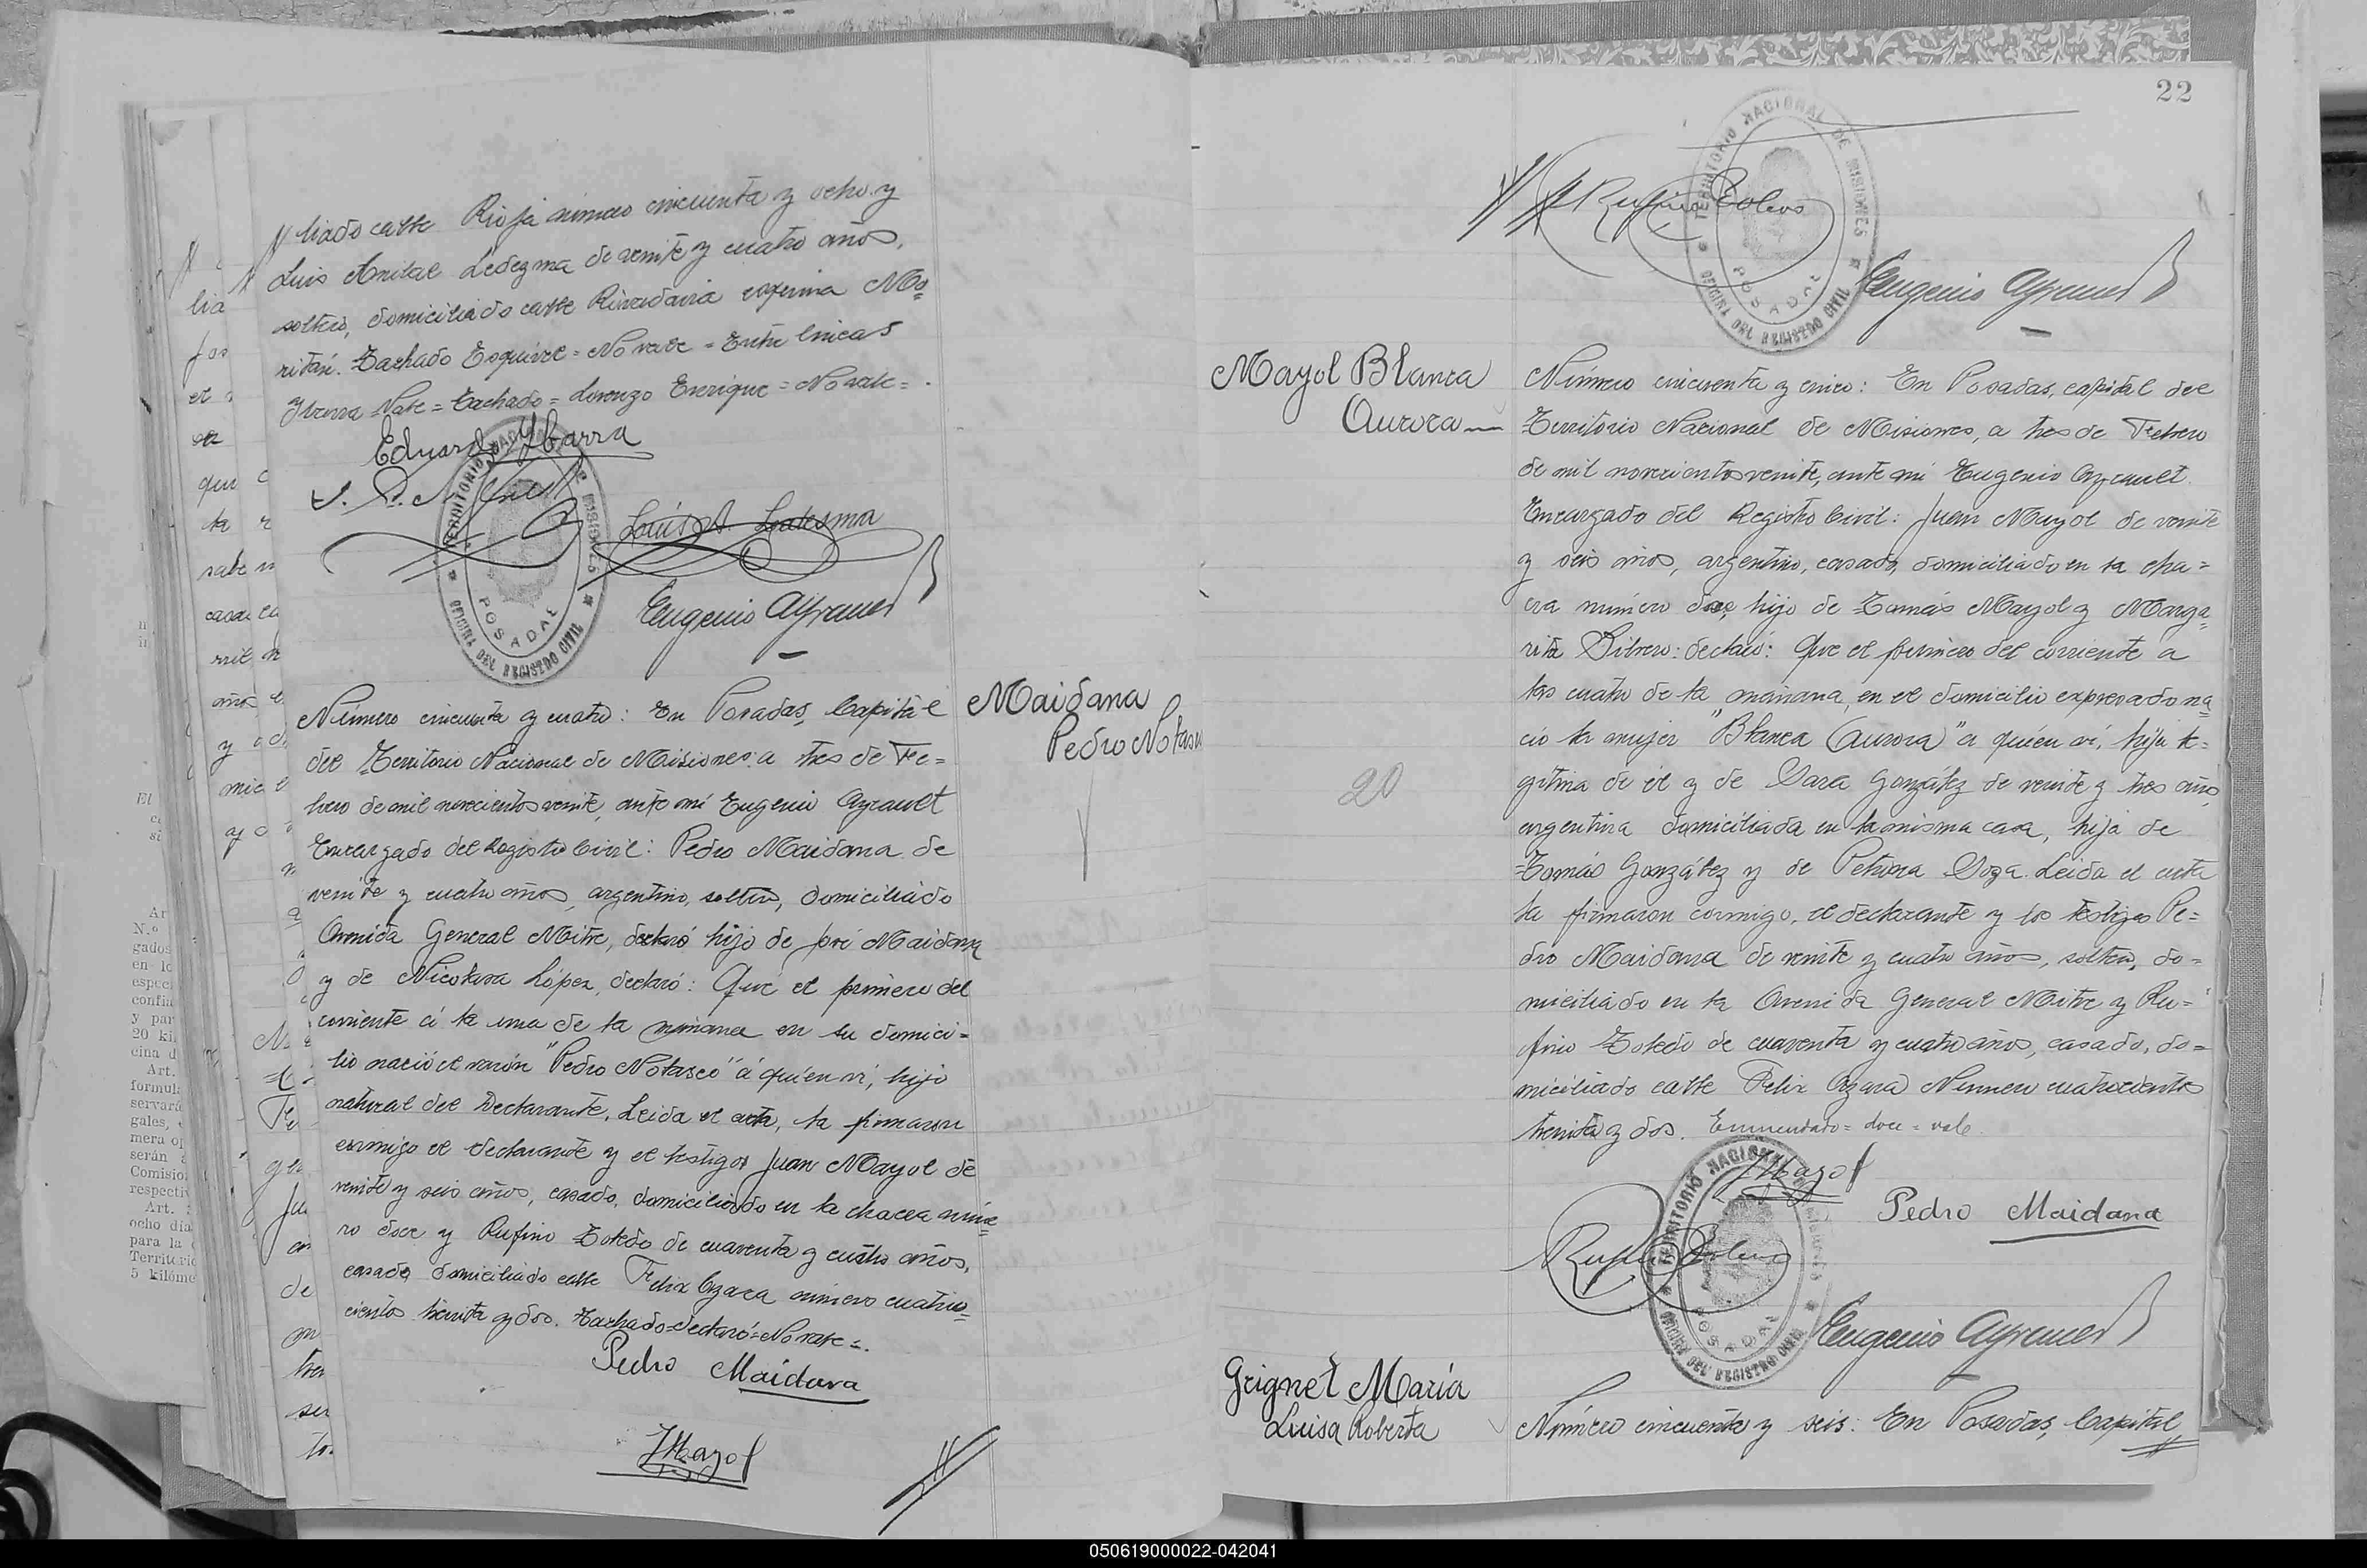 liado calle Rioja número cincuenta y ocho y
Luis Anibal Ledezma de veinte y cuatro años,
soltero, domiciliado calle Rivadavia esquina Mo=
ritán. Tachado Esquivel = No vale = Entre lineas
Ybarra Vale = Tachado = Lorenzo Enrique = No vale =.
Eduardo Ybarra
Luis A. Ledesma
Eugenio Ayrault
TERRITORIO NACIONAL DE MISIONES
POSADAS
OFICINA DEL REGISTRO CIVIL
Maidana
Pedro Nolasco
Número cincuenta y cuatro: En Posadas, Capital
del Territorio Nacional de Misiones a tres de Fe=
brero de mil novecientos veinte, ante mí Eugenio Ayrault
Encargado del Registro Civil: Pedro Maidana de
veinte y cuatro años, argentino, soltero, domiciliado
Avenida General Mitre, declaró hijo de José Maidana
y de Nicolasa López, declaró: Que el primero del
corriente á la una de la mañana en su domici=
lio nació el varón "Pedro Nolasco" á quien ví, hijo
natural del Declarante. Leida el acta, la firmaron
conmigo el declarante y el testigos Juan Mayol de
veinte y seis años, casado, domiciliado en la chacra núme=
ro doce y Rufino Toledo de cuarenta y cuatro años,
casado, domiciliado calle Felix Azara número cuatro=
cientos treinta y dos. Tachado = declaró = No vale =.
Pedro Maidana
JMayol
22
Rufino Toledo
TERRITORIO NACIONAL DE MISIONES
POSADAS
OFICINA DEL REGISTRO CIVIL
Eugenio Ayrault
Mayol Blanca
Aurora
20
Número cincuenta y cinco: En Posadas, capital del
Territorio Nacional de Misiones, a tres de Febrero
de mil novecientos veinte, ante mí Eugenio Ayrault
Encargado del Registro Civil: Juan Mayol de veinte
y seis años, argentino, casado, domiciliado en la cha=
cra número doce, hijo de Tomás Mayol y Marga=
rita declaró: Que el primero del corriente a
las cuatro de la mañana, en el domicilio expresado na=
ció la mujer "Blanca (Aurora)" a quien ví, hija le=
gitima de él y de Sara González de veinte y tres años,
argentina domiciliada en la misma casa, hija de
Tomás González y de Petrona Soza. Leida el acta
la firmaron conmigo, el declarante y los testigos Pe=
dro Maidana de veinte y cuatro años, soltero, do=
miciliado en la Avenida General Mitre y Ru=
fino Toledo de cuarenta y cuatro años, casado, do=
miciliado calle Felix Azara Número cuatrocientos
treinta y dos. Enmendado = doce = vale
JMayol
Pedro Maidana
Rufino Toledo
TERRITORIO NACIONAL DE MISIONES
POSADAS
OFICINA DEL REGISTRO CIVIL
Eugenio Ayrault
Grignet María
Luisa Roberta
Número cincuenta y seis: En Posadas, Capital
050619000022-042041